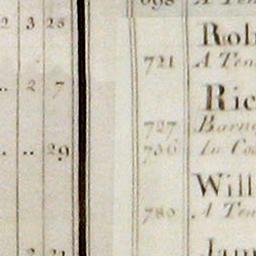 2 3 25
.. 2 7
.. .. 29
698 A Ten
Rob
721 A Ten
Ric
727 Barn
736 In Co
Will
780 A Ten
Jam